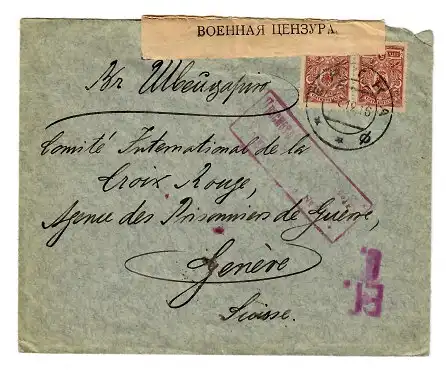 ВОЕННАЯ ЦЕНЗУРА.
Въ Швейцарію
Comité International de la
Croix Rouge,
Agence des Prisonniers de Guerre,
Genève
Suisse.